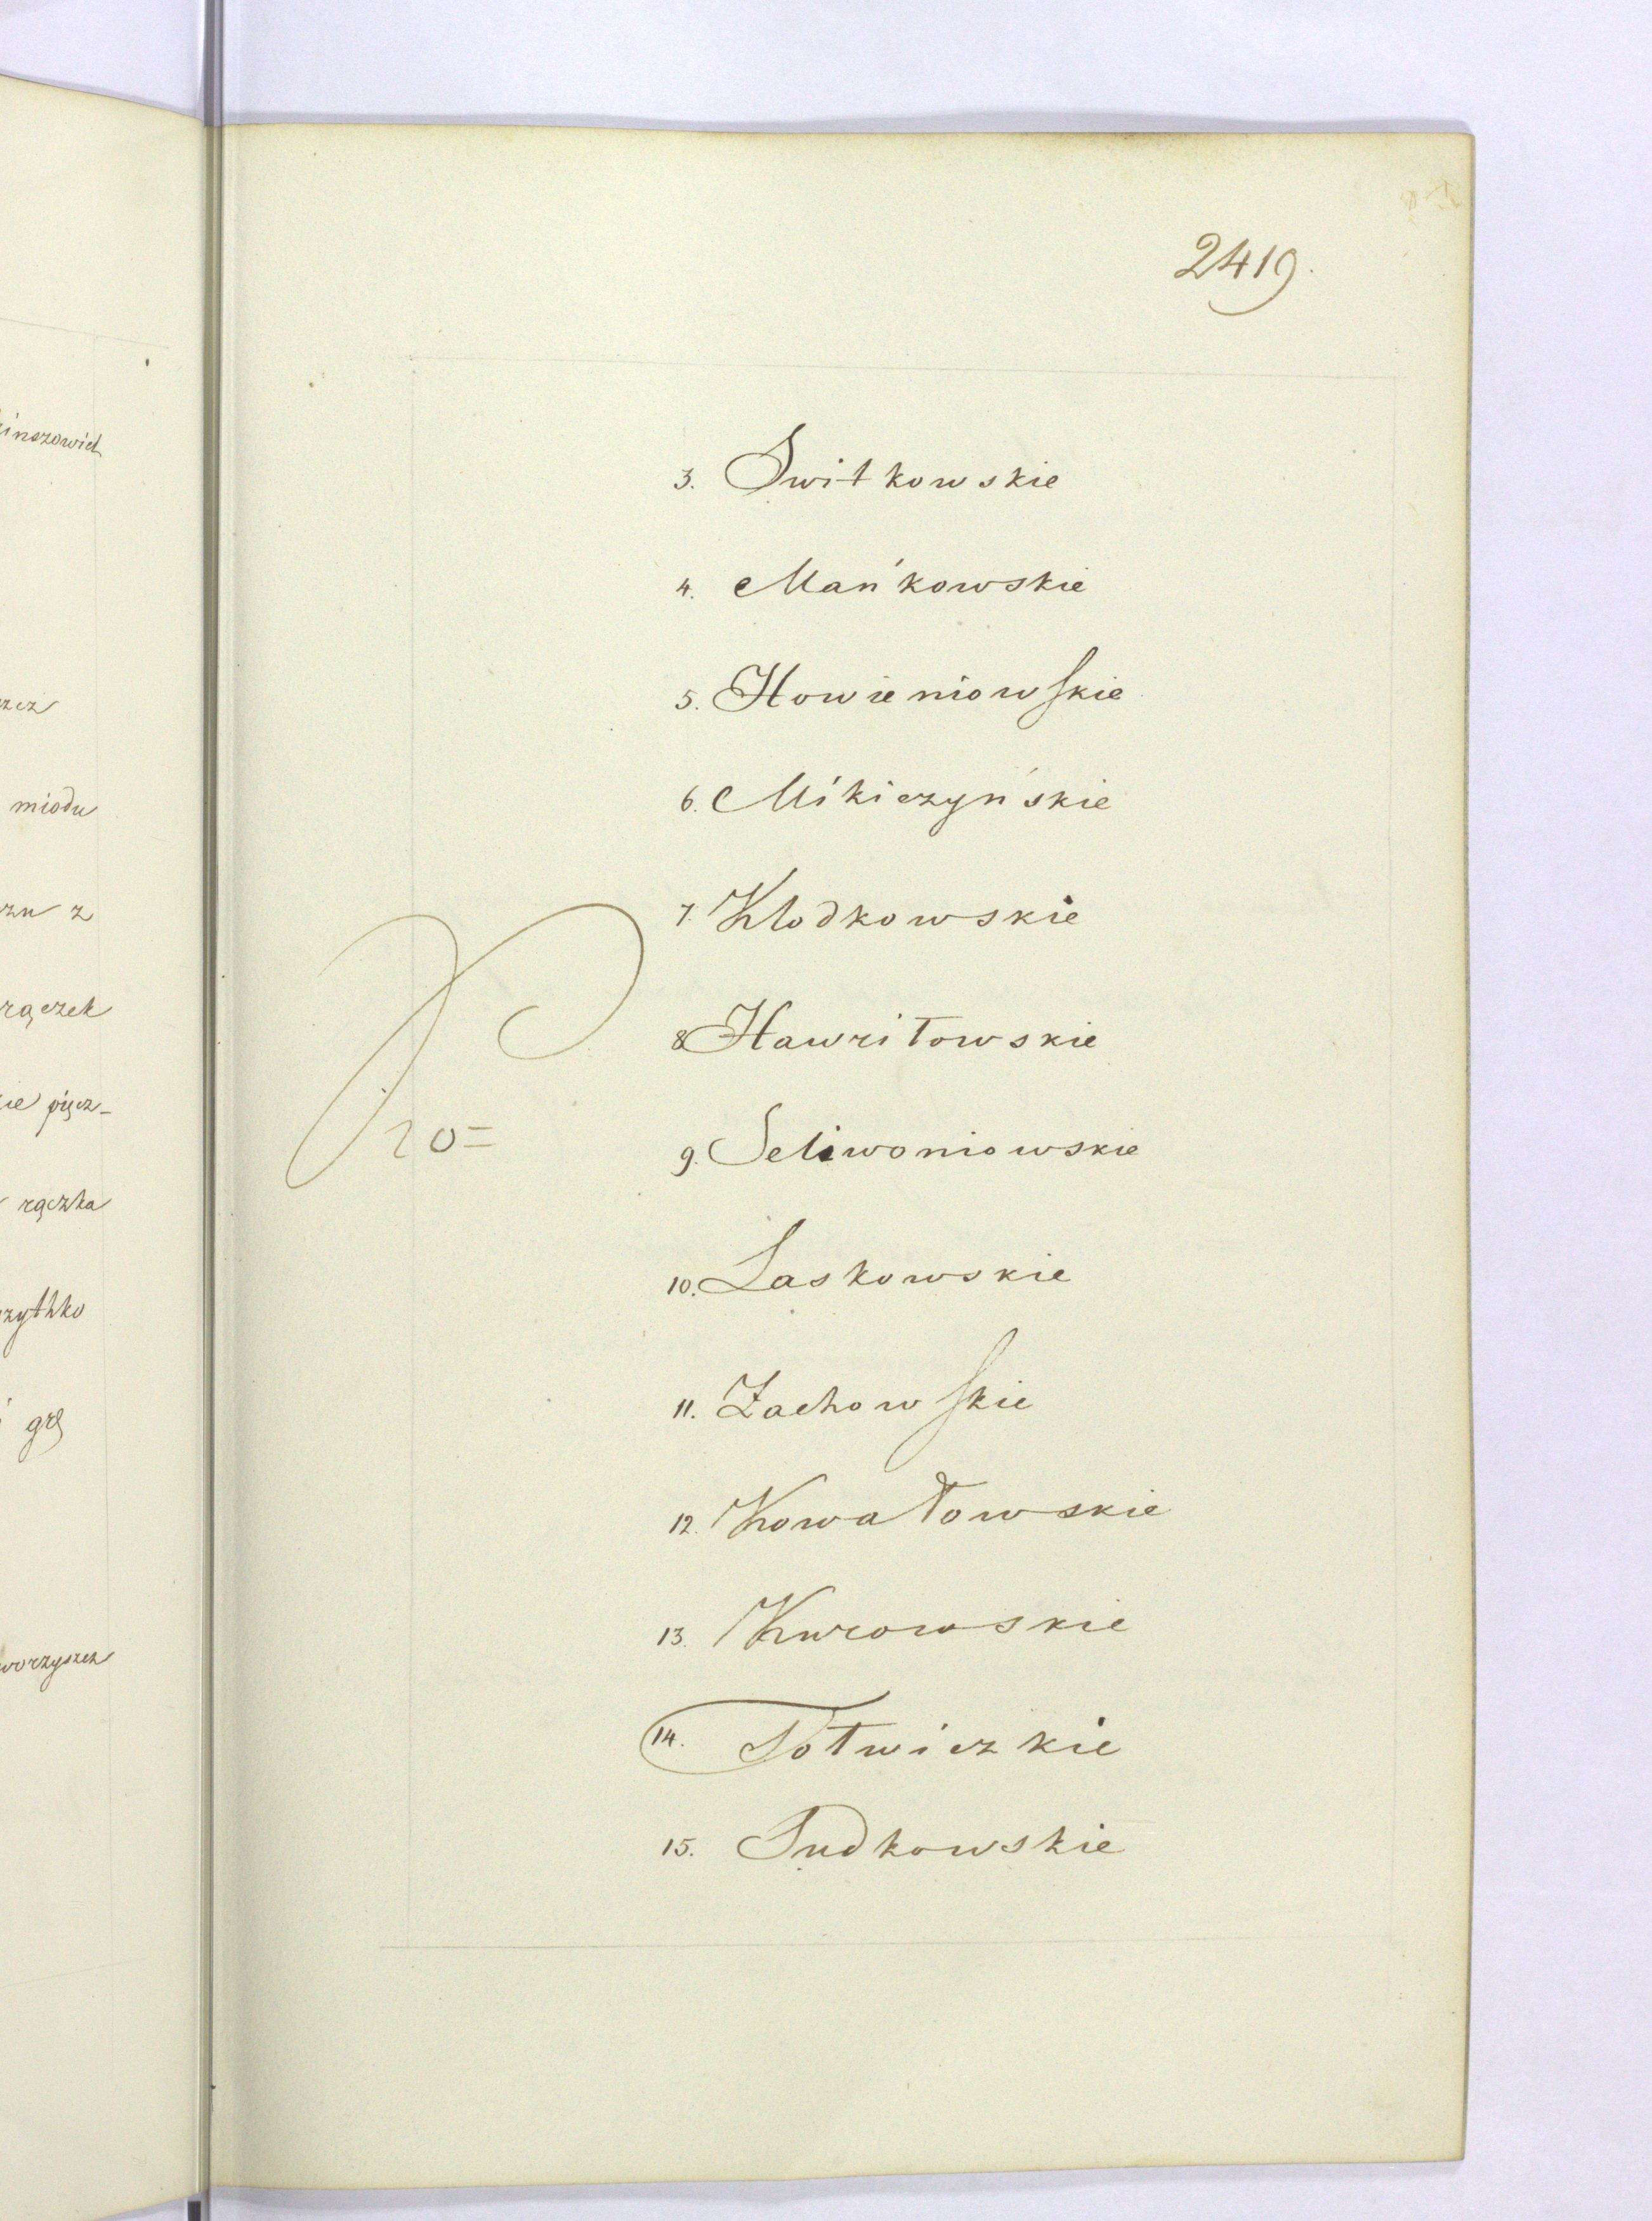 inszowich
zcz
miodu
zu z
rączek
ie pięcz-
rączka
zythko
grę
worzyszcz
2419.
3. Switkowskie
4. Mańkowskie
5. Howieniowskie
6. Mikiczyńskie
7. Kłodkowskie
8 Hawriłowskie
9. Seliwoniowskie
10. Laskowskie
11. Żachowskie
12. Kowałowskie
13. Kurowskie
14. Połwiczkie
15. Dudkowskie